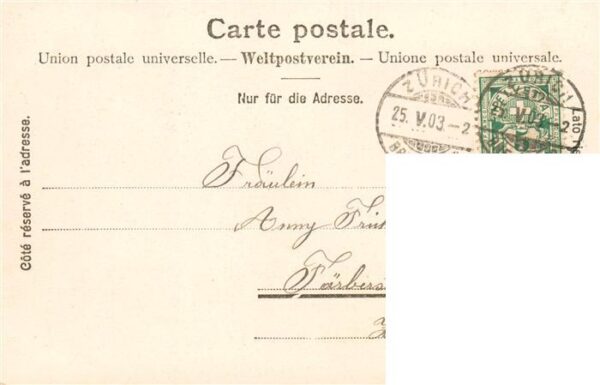 Carte postale.
Union postale universelle. — Weltpostverein. — Unione postale universale.
Nur für die Adresse.
Côté réservé à l'adresse.
ZÜRICH
25. V.03. – 2
ZÜRICH
V.03. – 2
Lato
Fräulein
Anny